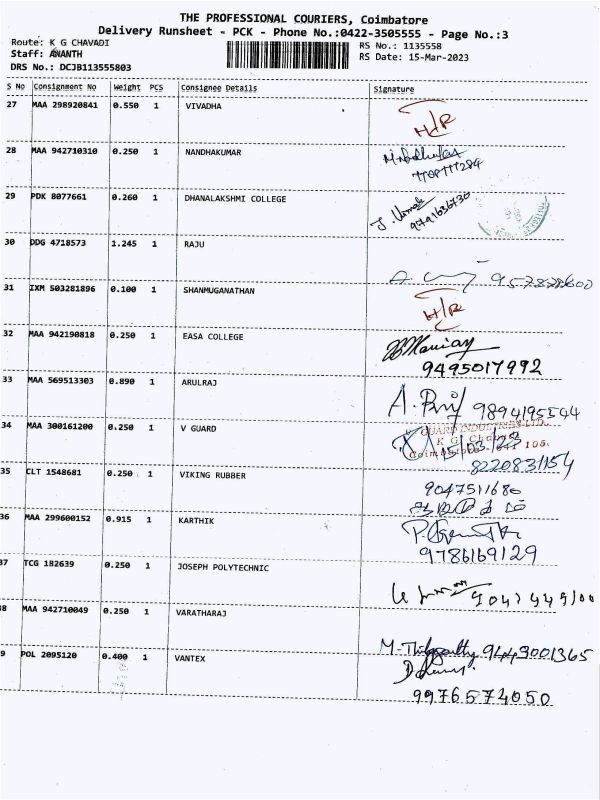 THE PROFESSIONAL COURIERS, Coimbatore
Delivery Runsheet - PCK - Phone No.:0422-3505555 - Page No.:3
Route: K G CHAVADI
RS No.: 1135558
Staff: AVANTH
RS Date: 15-Mar-2023
DRS No.: DCJB113555803
S No Consignment No Weight PCS Consignee Details Signature
27 MAA 298920841 0.550 1 VIVADHA
H/R
28 MAA 942710310 0.250 1 NANDHAKUMAR
29 PDK 8077661 0.260 1 DHANALAKSHMI COLLEGE
9791636730
30 DDG 4718573 1.245 1 RAJU
31 IXM 503281896 0.100 1 SHANMUGANATHAN
H/R
32 MAA 942190818 0.250 1 EASA COLLEGE
9495017992
33 MAA 569513303 0.890 1 ARULRAJ
9894195544
34 MAA 300161200 0.250 1 V GUARD
V GUARD INDUSTRIES LTD.
K G Chavadi
15/03/23
105.
8220831154
35 CLT 1548681 0.250 1 VIKING RUBBER
9047511686
36 MAA 299600152 0.915 1 KARTHIK
9786169129
37 TCG 182639 0.250 1 JOSEPH POLYTECHNIC
38 MAA 942710049 0.250 1 VARATHARAJ
9443001365
9 POL 2095120 0.400 1 VANTEX
9976574050